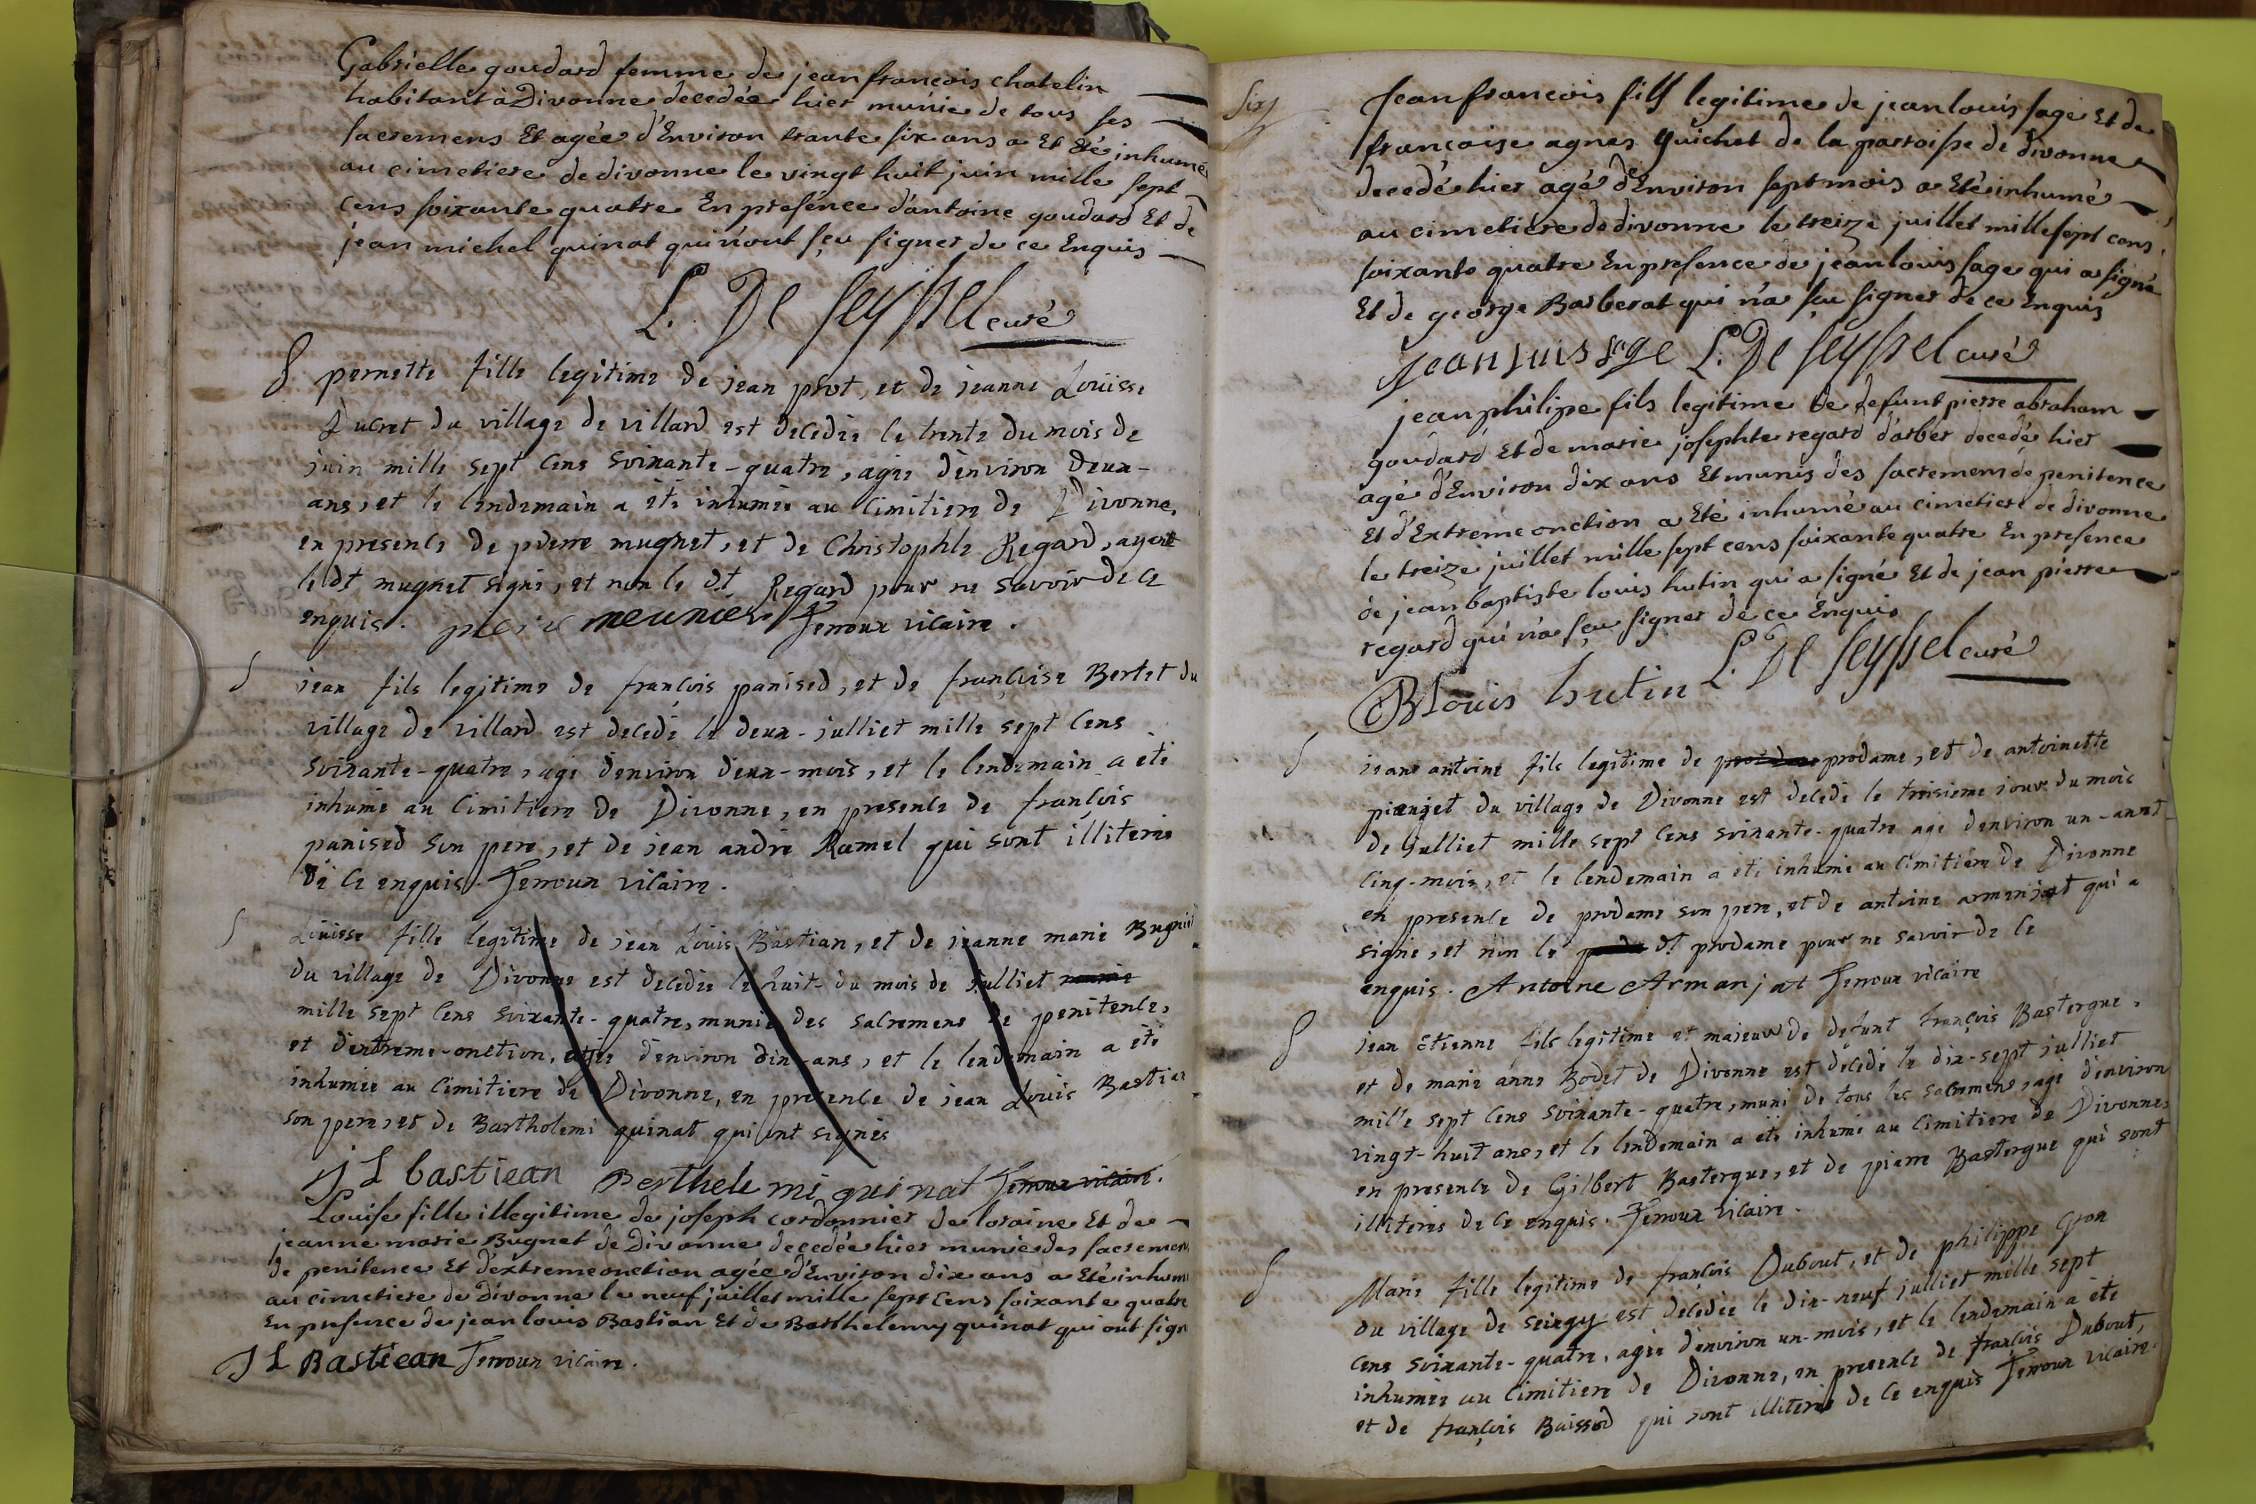 Gabrielle goudard femme de jean françois chatelin
habitant à Divonne decedée hier munie de tous ses
sacremens Et agée d'Environ trante six ans a Et été inhumée
au cimetiere de divonne le vingt huit juin mille sept
cens soixante quatre En presénce d'antoine goudard Et de
jean michel quinat qui n'ont sçu signer de ce Enquis
L. De Seyssel curé
pernette fille legitime de jean prot, et de jeanne Loüisse
Ducret du village de villard est decedée le trente du mois de
juin mille sept cens soixante-quatre, agée d'environ deux-
ans, et le lendemain a été inhumée au cimitiere de Divonne,
en presence de pierre mugnet, et de Christophle Regard, ayant
le dt mugnet signé, et non le dt Regard pour ne savoir de ce
enquis. pierre meunier Jenoux vicaire.
jean fils legitime de françois panised, et de françoise Bertet du
village de villard est decedé le deux-julliet mille sept cens
soixante-quatre, agé d'environ deux-mois, et le lendemain a été
inhumé au cimitiere de Divonne, en presence de françois
panised son pere, et de jean andré Ramel qui sont illiterés
de ce enquis. Jenoux vicaire.
Loüisse fille legitime de jean Loüis Bastian, et de jeanne marie Bugniet
du village de Divonne est decedée le huit du mois de julliet munie
mille sept cens soixante-quatre, munie des sacremens de penitence,
et d'extreme-onction, agée d'environ dix-ans, et le lendemain a été
inhumée au cimitiere de Divonne, en presence de jean Louis Bastian
son pere, et de Bartholemi quinat qui ont signés
J L bastiean Berthele mi quinat Jenoux vicaire.
Louise fille illegitime de joseph cordonnier de loraine Et de
jeanne marie Bugnet de Divonne decedée hier munie des sacremens
de penitence Et d'extremeonction agée d'Environ dix ans a Eté inhumé
au cimetiere de Divonne le neuf juillet mille sept cens soixante quatre
En presence de jean louis Bastian Et de Barthelemy quinat qui ont signé
J L Bastiean Jenoux vicaire.
six
Jean francois fils legitime de jean louis sage Et de
francoise agnes Guichet de la paroisse de divonne
decedé hier agé d'Environ sept mois a Eté inhumé
au cimetiere de divonne le treize juillet mille sept cens
soixante quatre En presence de jean louis sage qui a signé
Et de george Barberat qui n'a sçu signer de ce Enquis
Jean Luis sage L. De Seyssel curé
jean philipe fils legitime de defunt pierre abraham
goudard Et de marie josephte regard d'arbér decedé hier
agé d'Environ dix ans Et munis des sacremens de penitence
Et d'Extreme onction a Eté inhumé au cimetiere de divonne
le treize juillet mille sept cens soixante quatre En presence
de jean baptiste louis hutin qui a signé Et de jean pierre
regard qui n'a sçu signer de ce Enquis
B Louis hutin L. De Seyssel curé
jeane antoine fils legitime de prodame, et de antoinette
pianjet du village de Divonne est decedé le treisieme jour du mois
de julliet mille sept cens soixante-quatre agé d'environ un-anet
cinq-mois, et le lendemain a été inhumé au cimitiere de Divonne
en presence de prodame son pere, et de antoine armanjat qui a
signé, et non le dt prodame pour ne savoir de ce
enquis. Antoine Armanjat Jenoux vicaire
jean etienne fils legitime et majeur de defunt françois Bastergue,
et de marie anne Bodet de Divonne est decedé le dix-sept julliet
mille sept cens soixante-quatre, muni de tous les sacremens, agé d'environ
vingt-huit ans, et le lendemain a été inhumé au cimitiere de Divonne,
en presence de Gilbert Bastergue, et de pierre Bastergue qui sont
illiterés de ce enquis. Jenoux vicaire.
Marie fille legitime de françois Dubout, et de philippe Gros
du village de seirgy est decedée le dix-neuf julliet mille sept
cens soixante-quatre, agée d'environ un-mois, et le lendemain a été
inhumée au cimitiere de Divonne, en presence de françois Dubout,
et de françois Baissod qui sont illiterés de ce enquis Jenoux vicaire.